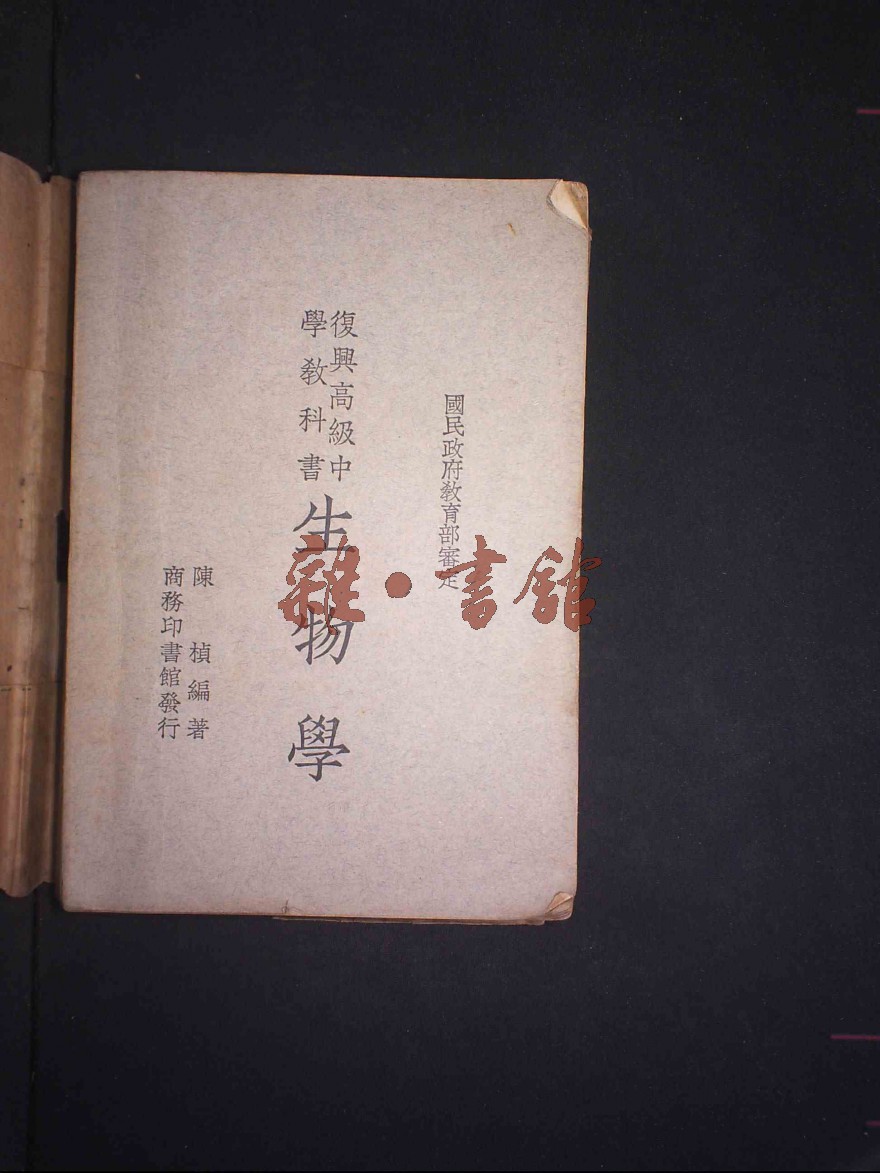 國民政府教育部審定
復興高級中
學教科書
生物學
陳楨編著
商務印書館發行
雜·書館